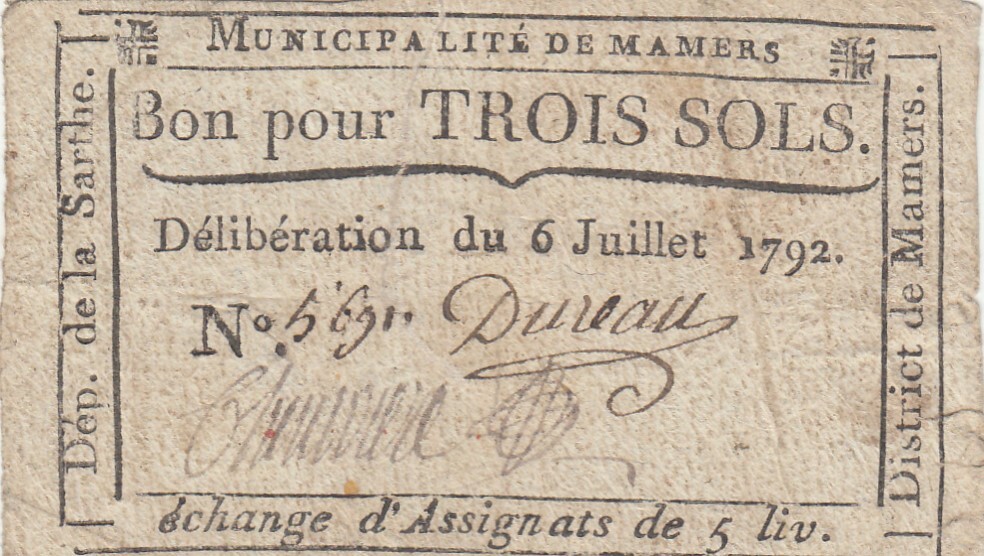 MUNICIPALITÉ DE MAMERS
Bon pour TROIS SOLS.
Délibération du 6 Juillet 1792.
Nº. 5691. Dureau
échange d'Assignats de 5 liv.
Dép. de la Sarthe.
District de Mamers.